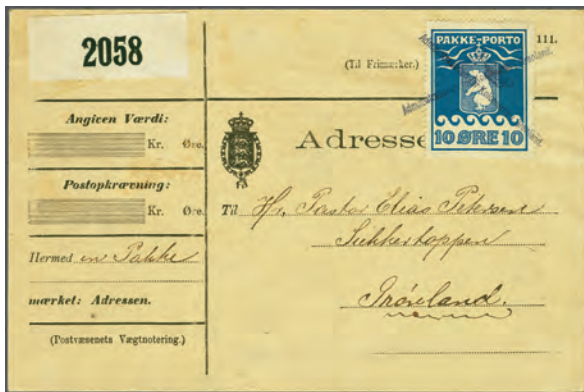 2058
PAKKE-PORTO
10 ØRE 10
111.
(Til Frimærker.)
Angiven Værdi:
Kr. Øre.
Postopkrævning:
Kr. Øre.
Hermed en Pakke
mærket: Adressen.
(Postvæsenets Vægtnotering.)
Adresse
Til Hr. Pastor Elias Petersen
Sukkertoppen
Grönland.